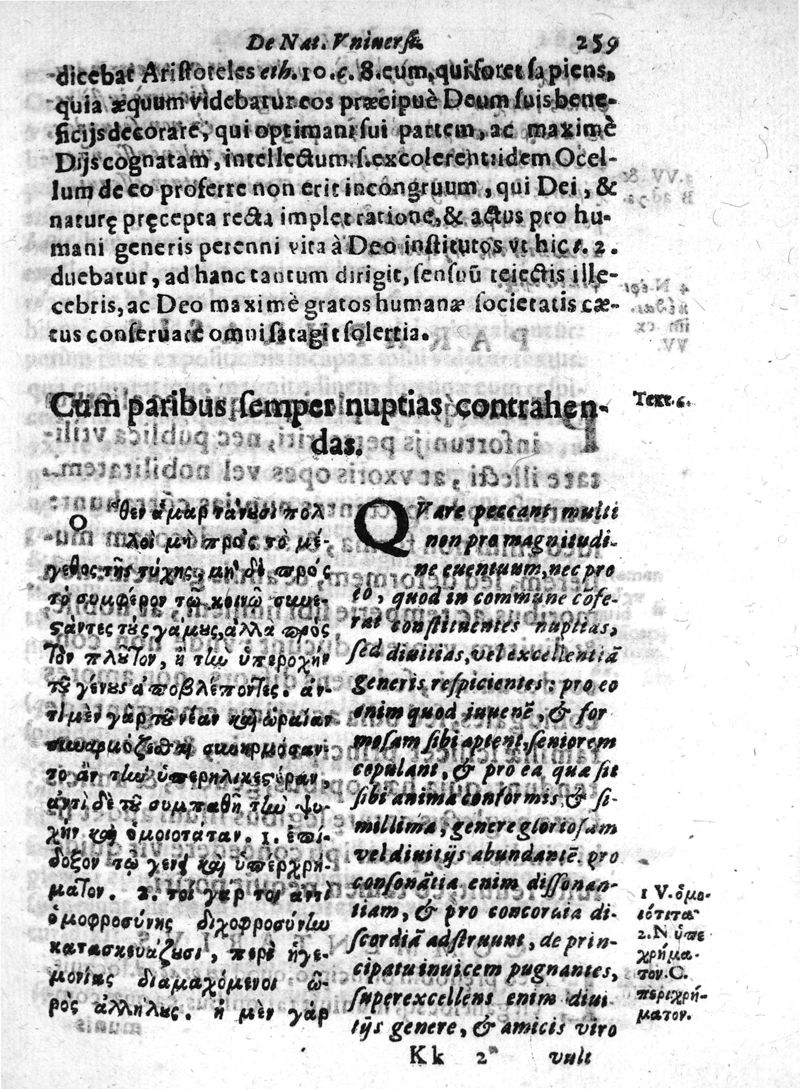 De Nat. Vniuersi. 259
dicebat Aristoteles eth. 10. c. 8. eum, qui foret sapiens,
quia æquum videbatur eos præcipuè Deum suis bene-
ficijs decorare, qui optimam sui partem, ac maximè
Dijs cognatam, intellectum .s. excolerent: idem Ocel-
lum de eo proferre non erit incongruum, qui Dei, &
naturę pręcepta recta implet ratione, & actus pro hu-
mani generis perenni vita à Deo institutos vt hic t. 2.
duebatur, ad hanc tantum dirigit, sensuū reiectis ille-
cebris, ac Deo maximè gratos humanæ societatis cæ-
tus conseruare omni satagit solertia.
Cum paribus semper nuptias contrahen-
das.
Text. 6.
Ὅθεν ἁμαρτάνουσι πολ
λοὶ μὴ πρὸς τὸ μέ-
γεθος τῆς τύχης, μηδὲ πρὸς
τὸ συμφέρον τῷ κοινῷ συνι-
ςάντες τοὺς γάμους, ἀλλὰ πρὸς
τὸν πλοῦτον, ἢ τὴν ὑπεροχὴν
τοῦ γένους ἀποβλέποντες. ἀν-
τὶ μὲν γὰρ τοῦ νέαν καὶ ὡραίαν
συναρμόζεσθαι συνηρμόσαν-
το ἂν τὴν ὑπερήλικες
ἀντὶ δὲ τοῦ συμπαθῆ τὴν ψυ-
χὴν καὶ ὁμοιοτάταν. 1. ἐπί-
δοξον τῷ γένει καὶ ὑπέρχρή-
ματον. 2. τοι γάρ τοι ἀντὶ
ὁμοφροσύνης διχοφροσύνην
κατασκευάζουσι, περὶ ἡγε-
μονίας διαμαχόμενοι ὥ-
ρὸς ἀλλήλους. ἡ μὲν γὰρ
QVare peccant multi
non pro magnitudi-
ne euentuum, nec pro
eo, quod in commune cōfe-
rat constituentes nuptias,
sed diuitias, vel excellentiā
generis respicientes: pro eo
enim quod iuuenē, & for
mosam sibi aptent, seniorem
copulant, & pro ea, quæ sit
sibi anima conformis, & si-
millima, genere gloriosam
vel diuitijs abundantē. pro
consonātia enim dissonan-
tiam, & pro concordia di-
scordiā adstruunt, de prin-
cipatu inuicem pugnantes,
superexcellens enim diui
tijs genere, & amicis viro
1 V. ὁμο-
ιότιτα
2. N ὑπε
χρήμα-
τον. C.
περιχρή-
ματον.
Kk 2 vult